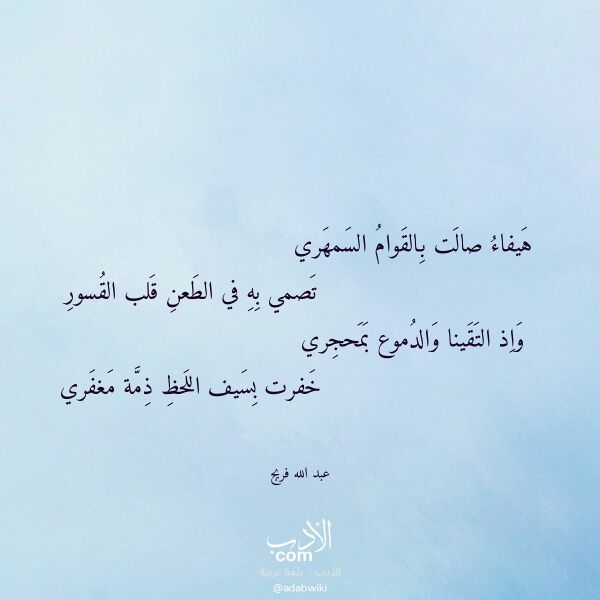 هَيفاءُ صالَت بِالقَوامُ السَمهَري
تَصمي بِهِ في الطَعنِ قَلب القُسورِ
وَاِذ التَقَينا وَالدُموع بَمَحجِري
خَفرت بِسَيف اللَحظِ ذِمَّة مَغفَري
عبد الله فريج
الأدب
com
الأدب .. بلغة عربية
@adabwiki